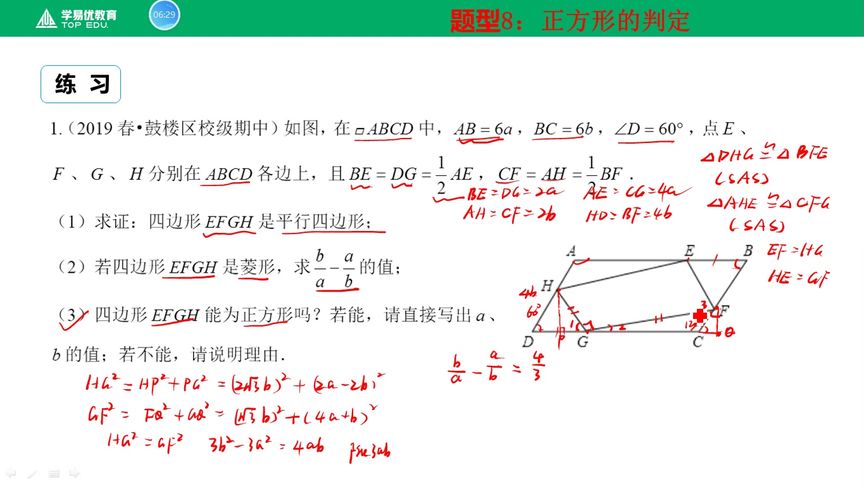 学易优教育
TOP EDU.
06:29
题型8：正方形的判定
练 习
1.（2019春•鼓楼区校级期中）如图，在▱ABCD中，AB=6a，BC=6b，∠D=60°，点E、
F、G、H分别在ABCD各边上，且BE=DG=1/2AE，CF=AH=1/2BF．
BE=DG=2a AE=CG=4a
AH=CF=2b HD=BF=4b
（1）求证：四边形EFGH是平行四边形；
（2）若四边形EFGH是菱形，求b/a-a/b的值；
（3）四边形EFGH能为正方形吗？若能，请直接写出a、
b的值；若不能，请说明理由．
△DHG≌△BFE
(SAS)
△AHE≌△CFG
(SAS)
EF=HG
HE=GF
A E B
H F
D G C
4b
60°
b/a-a/b=4/3
HG²=HP²+PG²=(2√3b)²+(2a-2b)²
GF²=FQ²+GQ²=(√3b)²+(4a+b)²
HG²=GF² 3b²-3a²=4ab